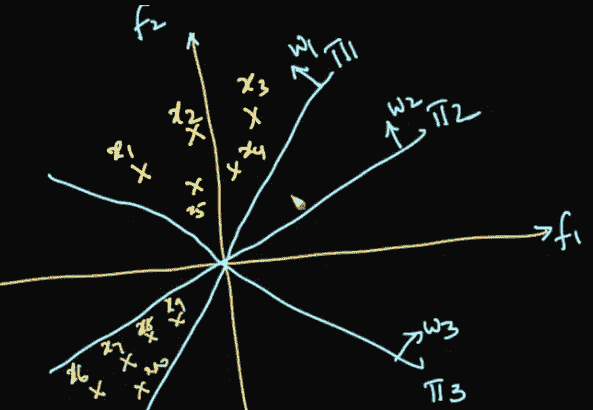 f2
w1 π1
x3
w2 π2
x2
x1
x4
x5
f1
x9
x8
w3
x7
x6
x10
π3